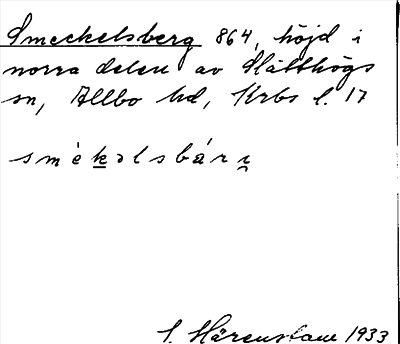 Smeckelsberg 864, höjd i
norra delen av Slätthögs
sn, Allbo hd, Krbs l. 17
smèkəlsbárɩ
S. Härenstam 1933